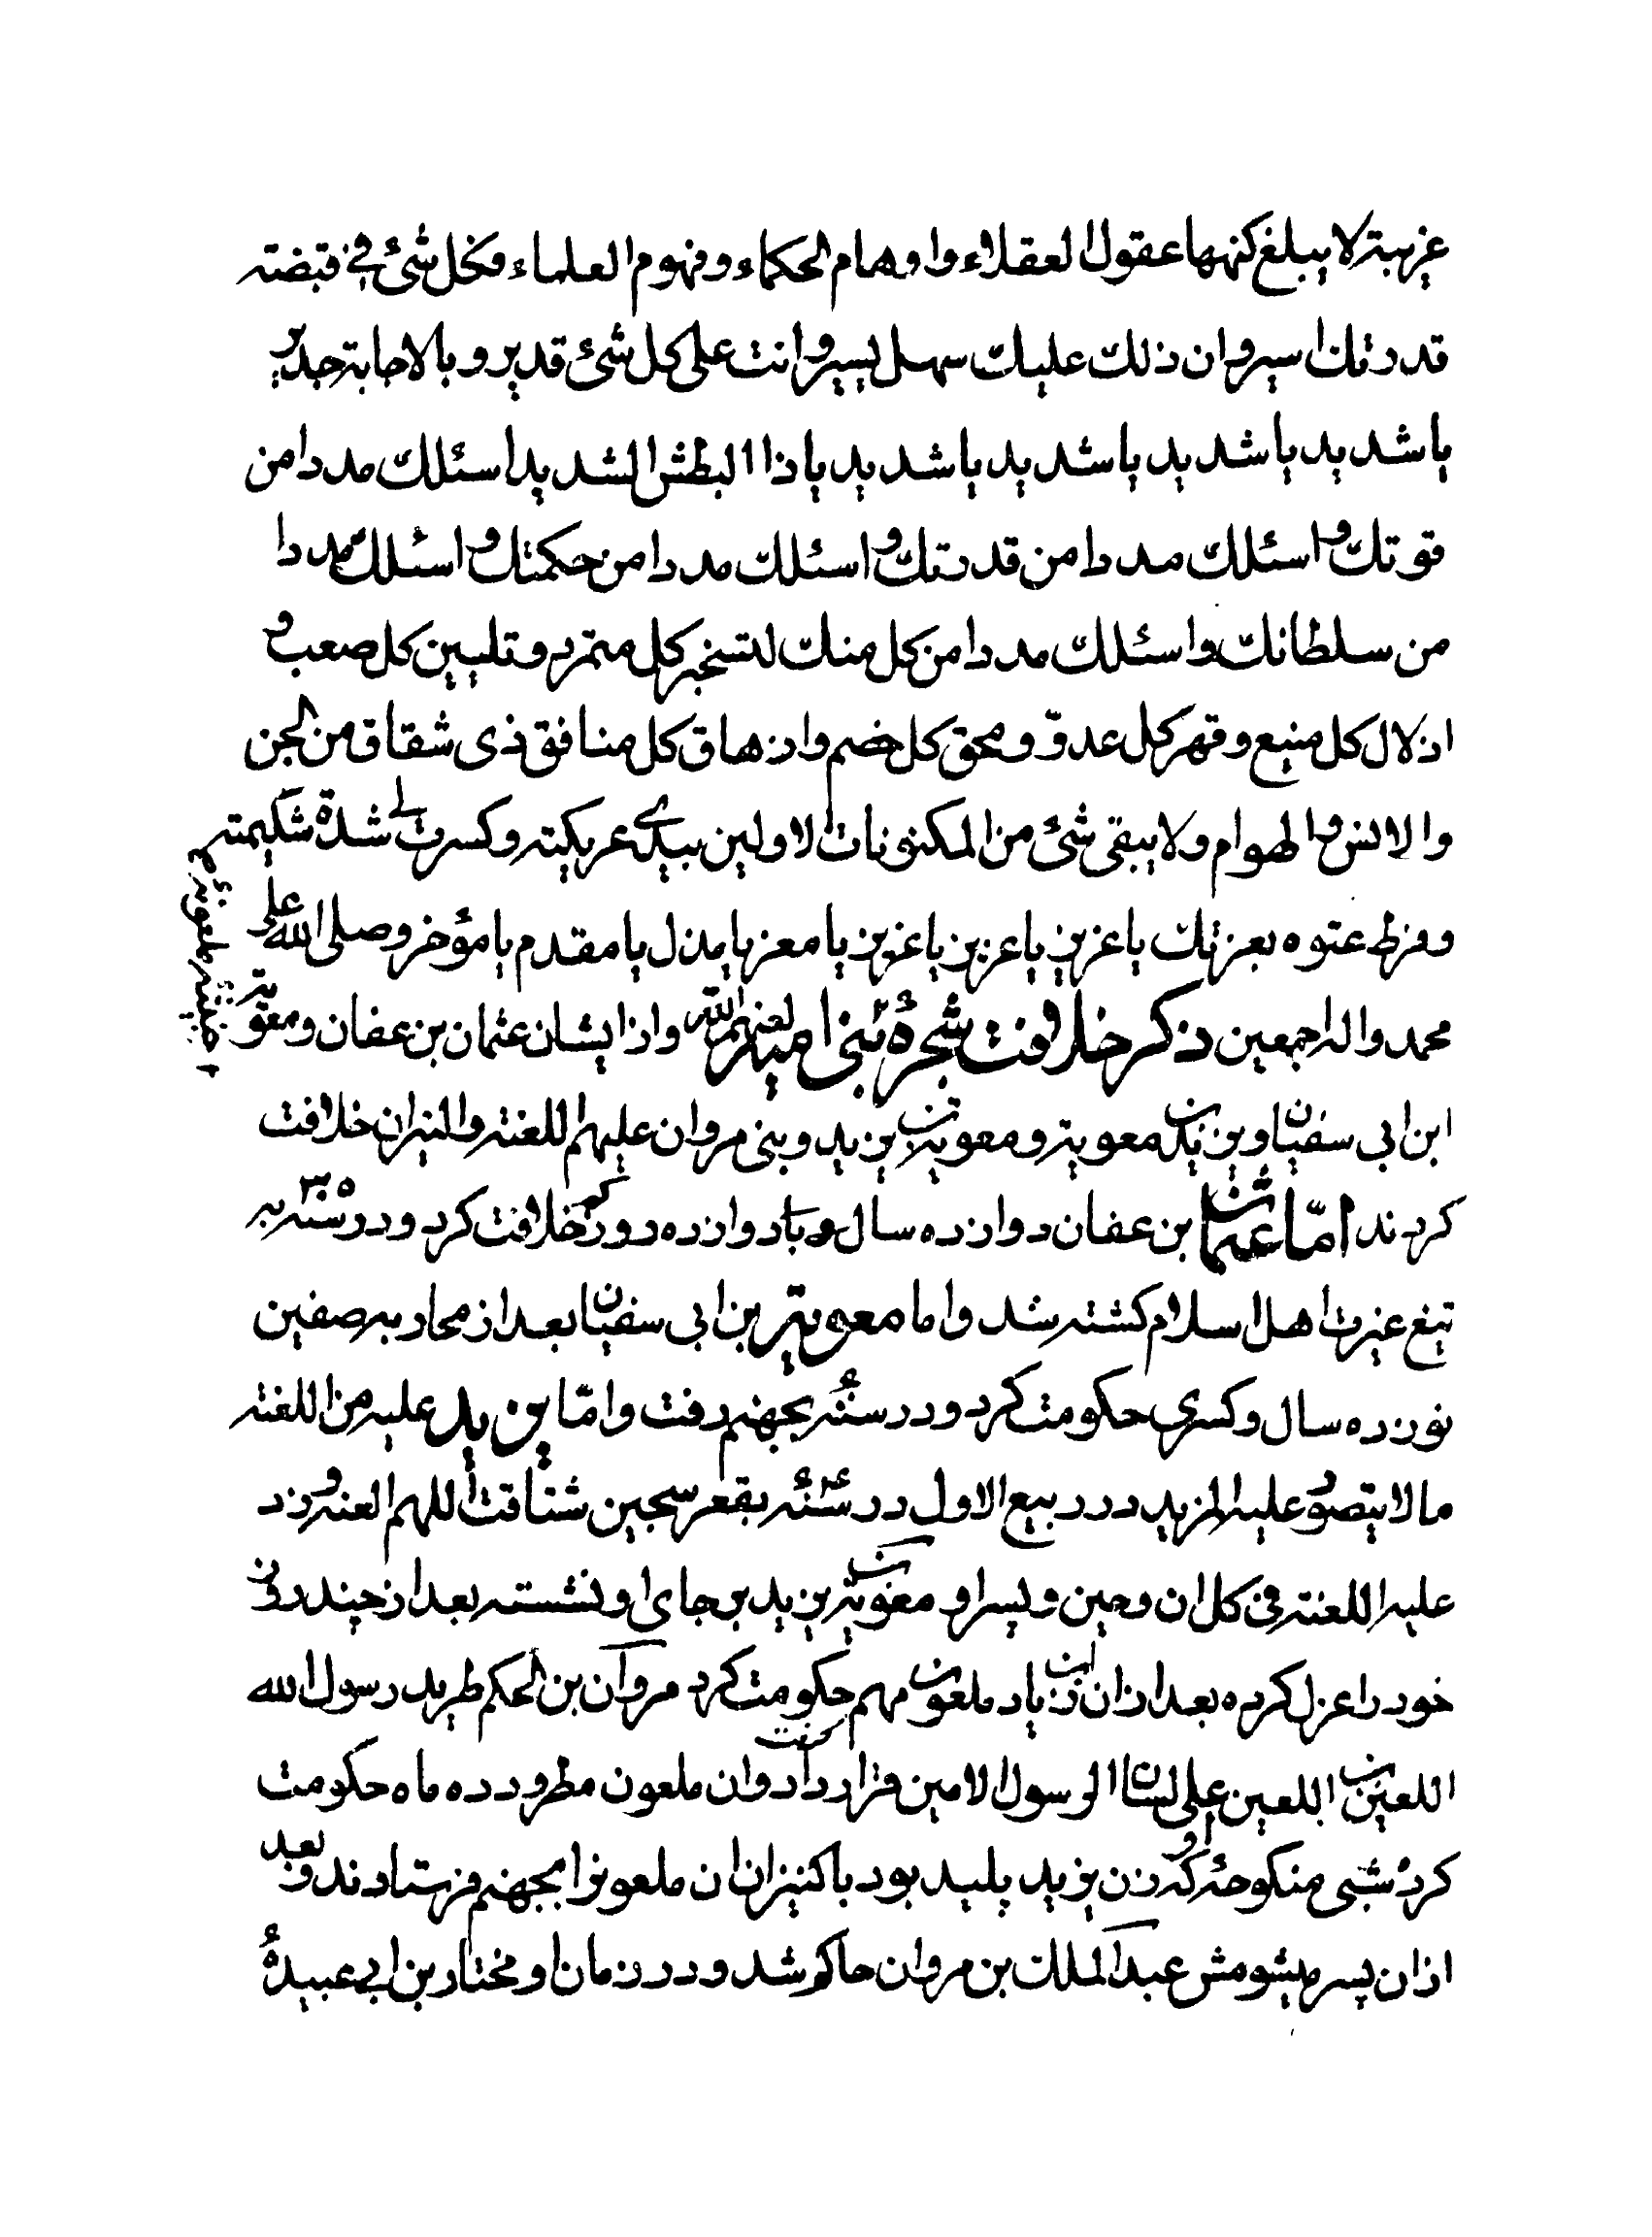 غريبة لا يبلغ كنهها عقول العقلاء و اوهام الحكماء و فهوم العلماء فكل شئ في قبضته
قدرتك اسير و ان ذلك عليك سهل يسير و انت على كل شئ قدير و بالاجابة جدير
يا شديد يا شديد يا شديد يا شديد يا ذا البطش الشديد اسئلك مددا من
قوتك و اسئلك مددا من قدرتك و اسئلك مددا من حكمتك و اسئلك مددا
من سلطانك و اسئلك مددا من كل منك لتسخير كل متمرد و تليين كل صعب و
اذلال كل منيع و قهر كل عدوّ و محق كل خصم و ازهاق كل منافق ذى شقاق من الجن
و الانس و الهوام و لا يبقى شئ من المكنونات الا و لين بيدي عريكته و كسرت لي شدة شكيمته
و فرط عتوه بعزتك يا عزيز يا عزيز يا عزيز يا معز يا مذل يا مقدم يا مؤخر و صلى الله على
محمد و اله اجمعين ذكر خلافت شجرۀ بنى اميه لعنهم الله و از ايشان عثمان بن عفان و معوية
ابن ابى سفيان و يزيد بن معوية و معوية بن يزيد و بنى مروان عليهم اللعنة و النيران خلافت
كردند امّا عثمان بن عفان دوازده سال دوازده روز كم خلافت كرد و در سنه ٣٥ به
تيغ غيرت اهل اسلام كشته شد و اما معوية بن ابى سفيان بعد از محاربه صفين
نوزده سال و كسرى حكومت كرد و در سنه بجهنم رفت و امّا يزيد عليه من اللعنة
ما لا يتصور عليه المزيد در ربيع الاول در سنه بقعر سجين شتافت اللهم العنه و زد
عليه اللعنة فى كل ان و حين و پسر او معوية بن يزيد بر جاى او نشسته بعد از چند روز
خود را عزل كرده بعد از ان ابن زياد ملعون مهم حكومت كرد مروان بن الحكم طريد رسول الله
اللعين بن اللعين على لسان الرسول الامين قرار داد و ان ملعون مطرود ده ماه حكومت
كرد شبى منكوحۀ او كه زن يزيد پليد بود با كنيزان ان ملعونرا بجهنم فرستادند و بعد
از ان پسر ميشومش عبد الملك بن مروان حاكم شد و در زمان او مختار بن ابى عبيدۀ